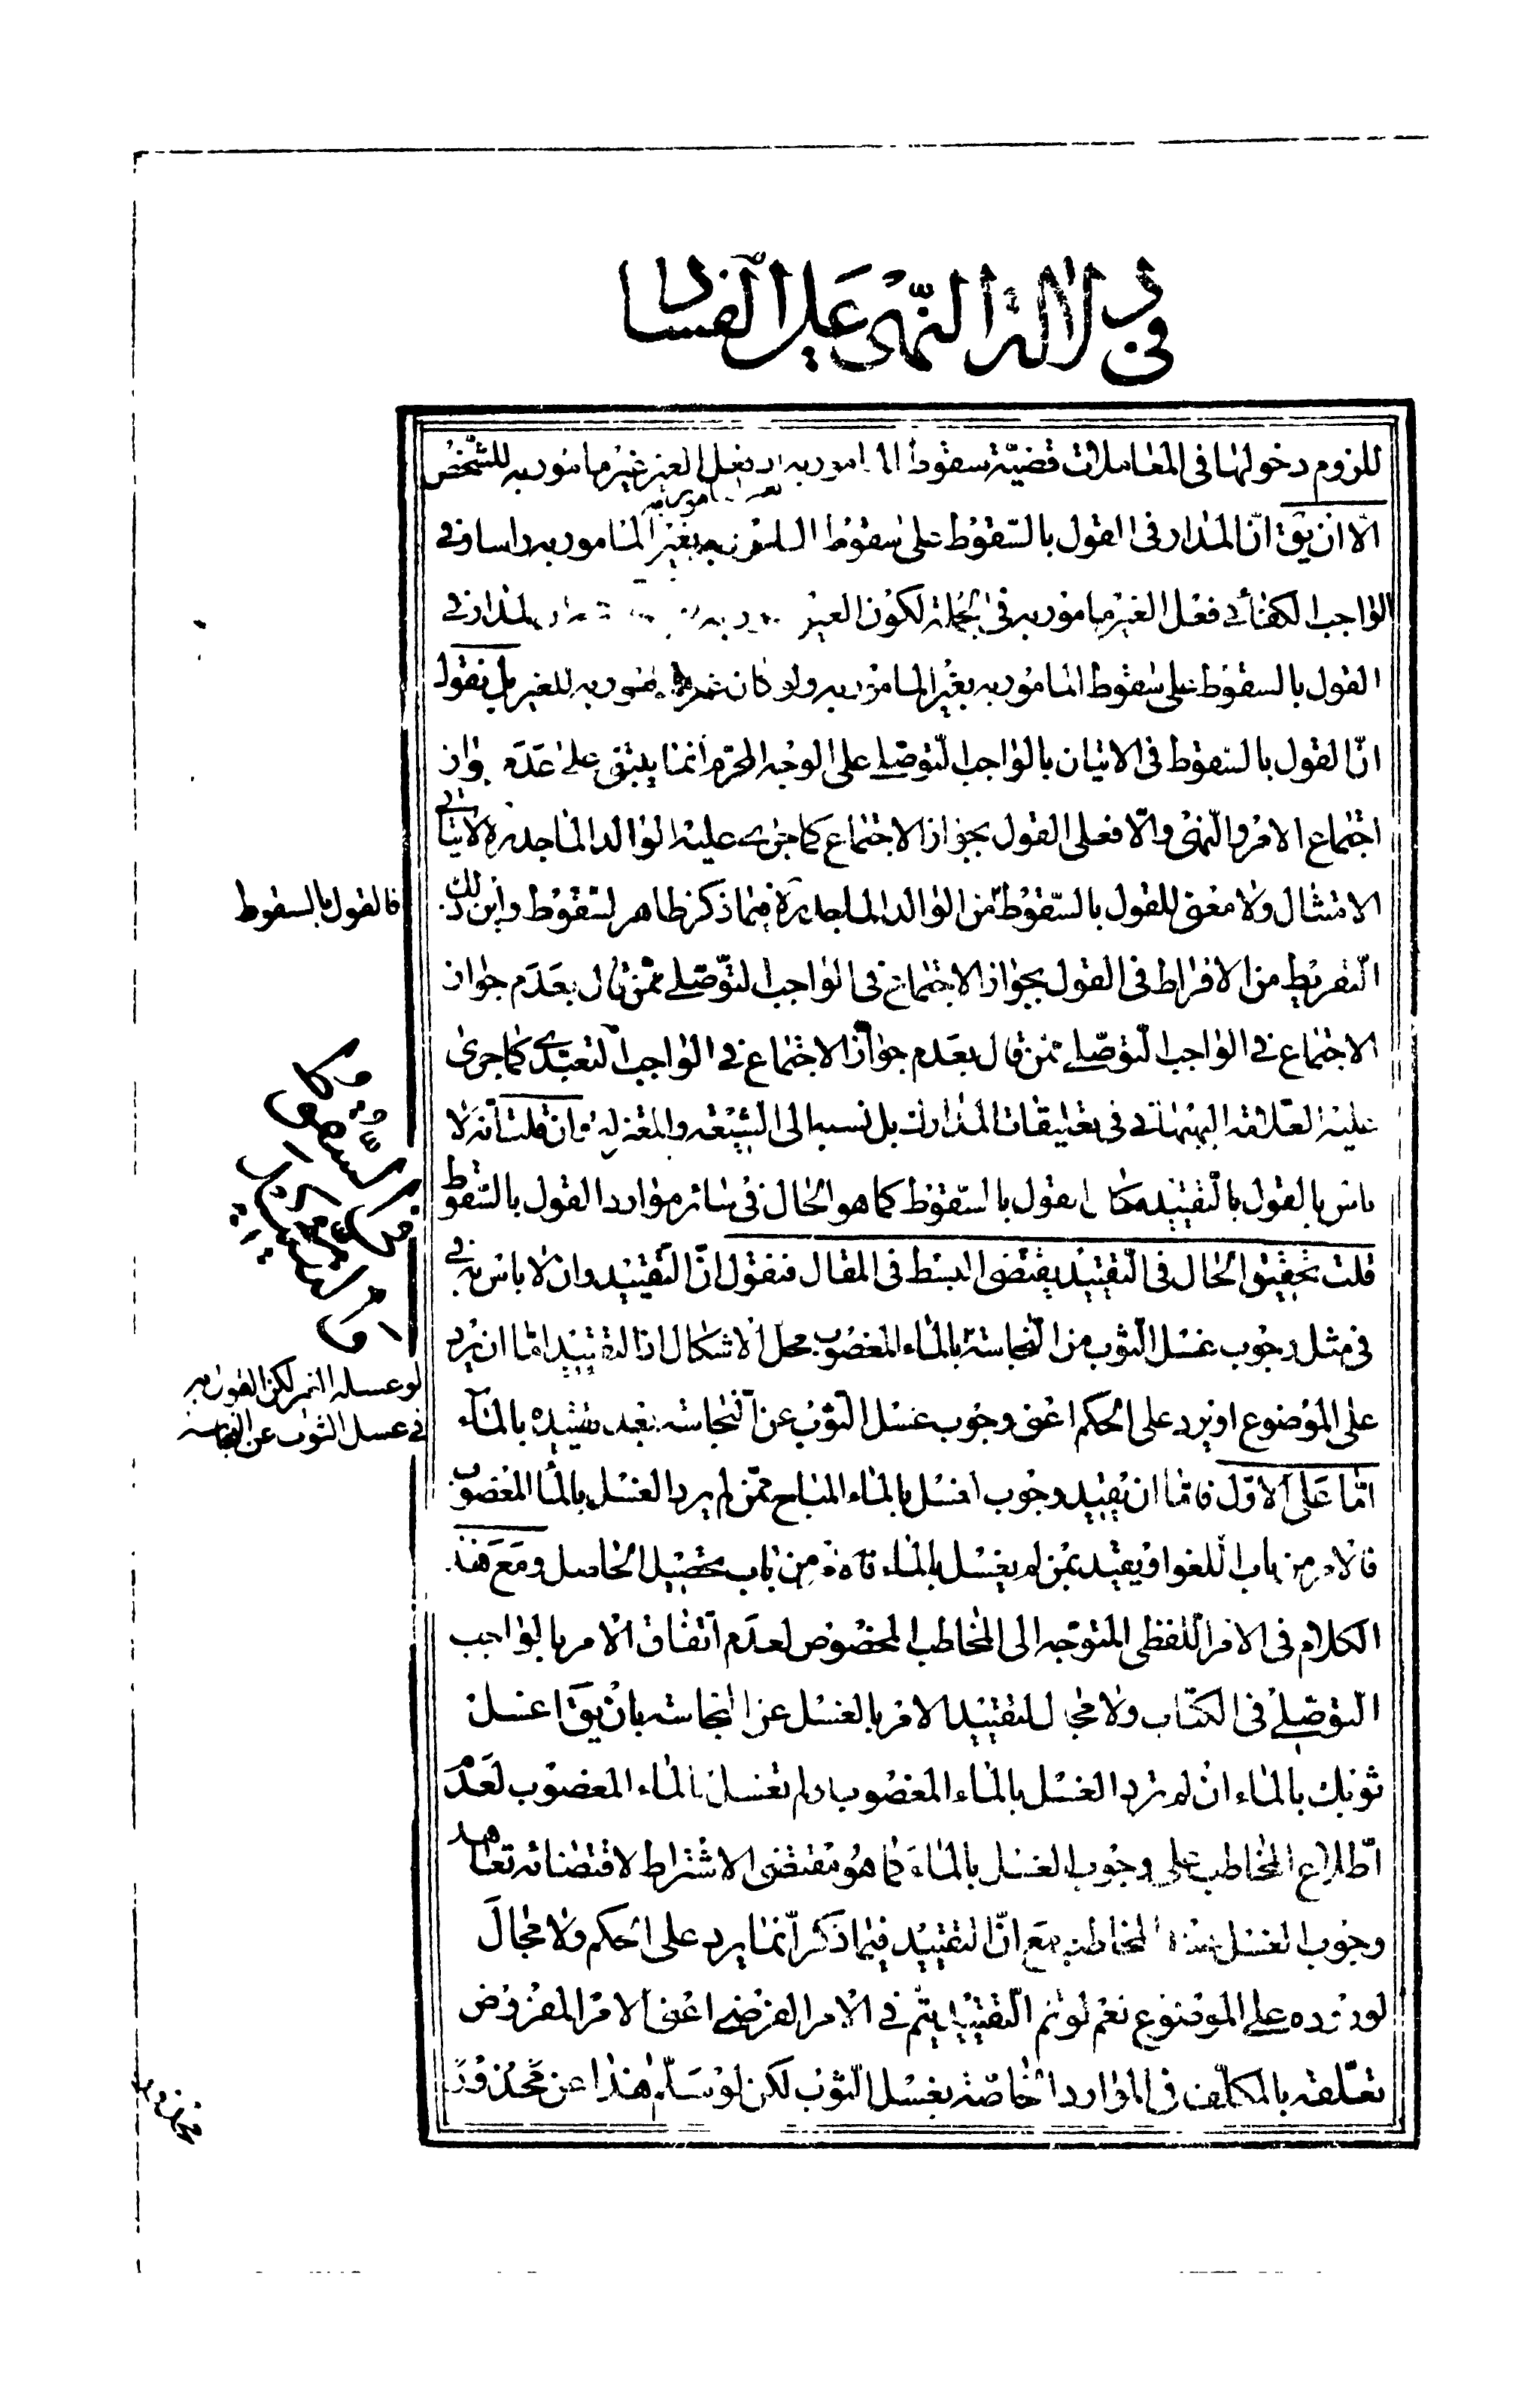 في دلالة النهى على الفساد
للزوم دخولها فى المعاملات قضيّة سقوط المامور به بفعل الغير غير مامور به للشخص
الّا ان يق انّ المدار فى القول بالسّقوط على سقوط المامور به بغير المامور به راسا وفى
الواجب الكفائى فعل الغير مامور به فى الجملة لكون الغير المدار فى
القول بالسقوط على سقوط المامور به بغير المامور به ولو كان مامور به للغير بل نقول
انّ القول بالسّقوط فى الاتيان بالواجب التوصّلى على الوجه المحرّم انّما يبتنى على عدم جواز
اجتماع الامر والنّهى والّا فعلى القول بجواز الاجتماع كما جرى عليه الوالد الماجد ره لا يتاتى
الامتثال ولا معنى للقول بالسّقوط من الوالد الماجد ره فيما ذكر ظاهر لسقوط واين ذلك
التفريط من الافراط فى القول بجواز الاجتماع فى الواجب التوصّلى ممّن قال بعدم جواز
الاجتماع فى الواجب التوصّلى ممّن قال بعدم جواز الاجتماع فى الواجب التعبّدى كما جرى
عليه العلّامة البهبهانى فى تعليقات المدارك بل نسبه الى الشيعة والمعتزلة وان قلت انّه لا
باس بالقول بالتقييد مكان القول بالسّقوط كما هو الحال فى سائر موارد القول بالسّقوط
قلت تحقيق الحال فى التقييد يقتضى البسط فى المقال فنقول انّ التقييد وان لا باس به فى
فى مثل وجوب غسل الثوب من النجاسة بالماء المغصوب محل الاشكال اذ التقييد امّا ان يرد
على الموضوع او يرد على الحكم اعنى وجوب غسل الثوب عن النجاسة بعد تقييده بالماء
امّا على الاوّل فامّا ان يقيد وجوب الغسل بالماء المباح ممّن لم يرد الغسل بالماء المغصوب
فالامر من باب اللغو او يقيد بمن لم يغسل بالماء من باب تحصيل الحاصل ومع هذا
الكلام فى الامر اللفظى المتوجّه الى المخاطب المخصوص لعدم اتّفاق الامر بالواجب
التوصّلى فى الكتاب ولا مجال لتقييد الامر بالغسل عن النجاسة بان يق اغسل
ثوبك بالماء ان لم ترد الغسل بالماء المغصوب او لم تغسل بالماء المغصوب لعدم
اطّلاع المخاطب على وجوب الغسل بالماء كما هو مقتضى الاشتراط لاقتضائه تعاهد
وجوب الغسل عند المخاطب مع انّ التقييد فيما ذكر انّما يرد على الحكم ولا مجال
لوروده على الموضوع نعم لو تم التقييد يتم فى الامر الفرضى اعنى الامر المفروض
تعلّقه بالمكلّف فى الموارد الخاصّة بغسل الثوب لكن لو سلم هذا عن محذور
فالقول بالسقوط
لو غسله الغير لكن القول به
فى غسل الثوب عن النجاسة